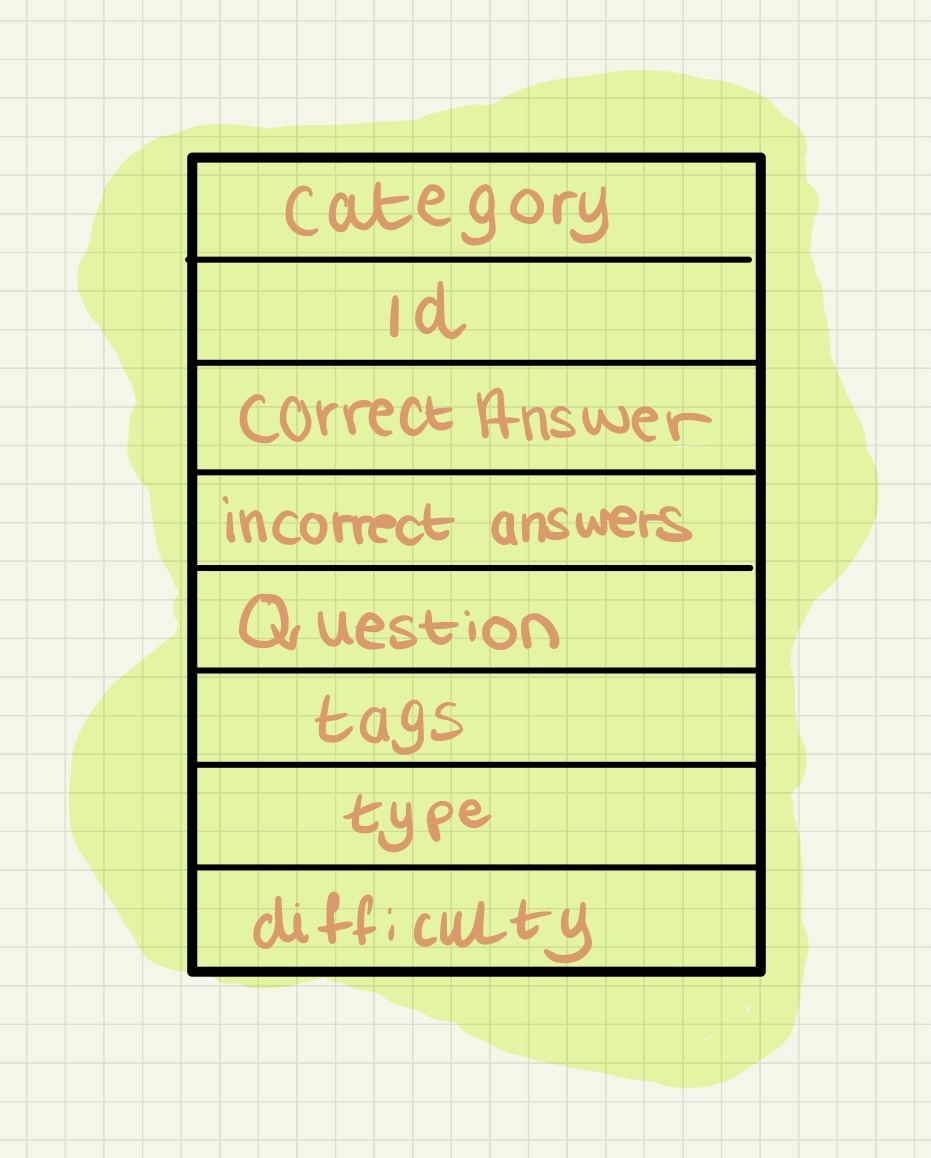 Category
Id
Correct Answer
incorrect answers
Question
tags
type
difficulty